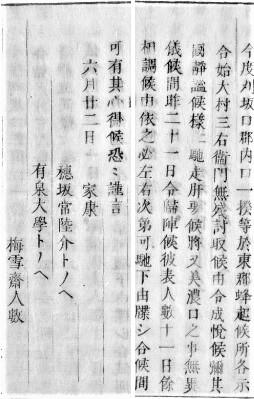 今度刈坂口郡内口一揆等於東郡蜂起候所各示
合始大村三右衛門無殘討取候由令成悅候彌其
國靜謐候樣ニ馳走肝要候將又美濃口之事無異
儀候間昨二十一日令歸陣候彼表人數十一日餘
相調候由依之必左右次第可馳下由牒シ合候間
可有其心得候恐ミ謹言
六月廿二日　家康
穗坂常陸介トノヘ
有泉大學トノヘ
梅雪齋人數